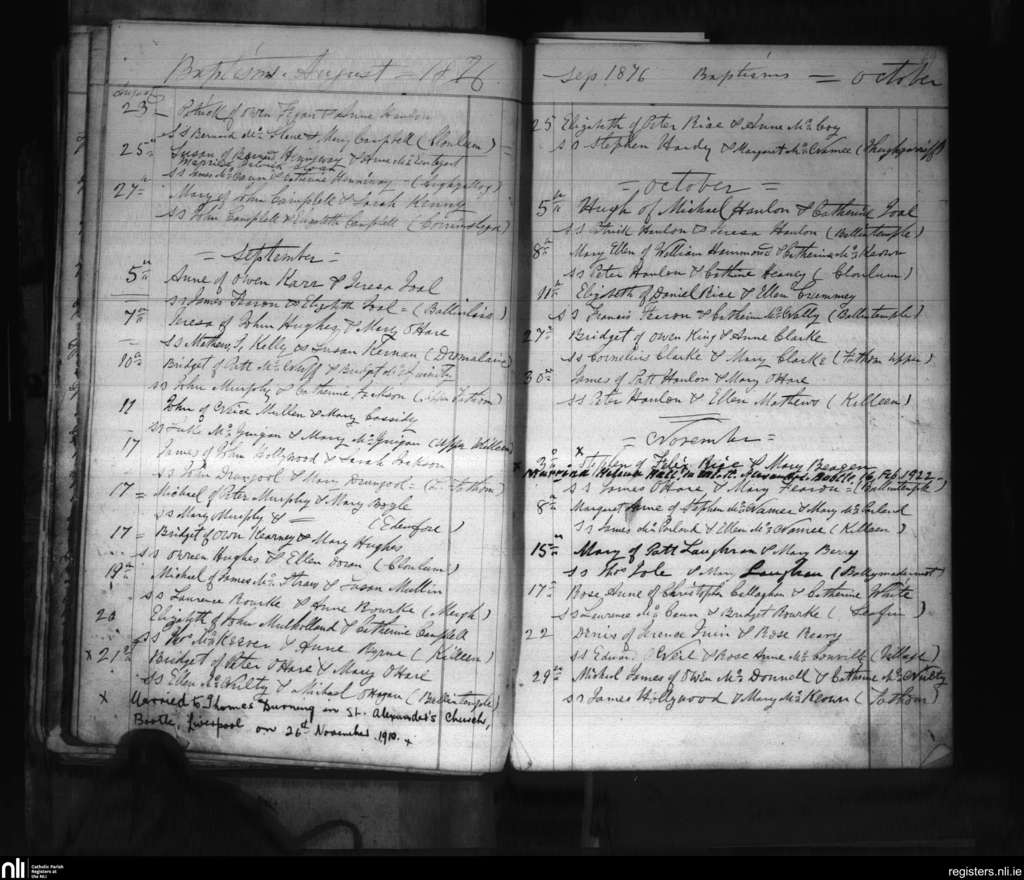 Baptisms. August = 1876
August
23 - Patrick of Owen Fegan & Anne Hanlon
SS Bernard Mc Shane & Mary Campbell (Clonlum)
25th Susan of Bernard & Anne Mc
SS James Mc Cann & Catherine
27th Mary of John Campbell & Sarah Kenny
SS John Campbell & Elizabeth Campbell
= September =
5th Anne of Owen Karr & Teresa Toal
SS James Fearon & Elizabeth Toal =
7th Teresa of John Hughes & Mary O'Hare
SS Mathew J. Kelly & Susan Kernan (Dromalane)
10th Bridget of Patt Mc & Bridget
SS John Murphy & Catherine Jackson (Upper Fathom)
11 John of Mullen & Mary Cassidy
SS Luke Mc Guigan & Mary Mc Guigan (Upper Killeen)
17 James of John Hollywood & Sarah Jackson
SS John & Mary (L. Fathom)
17 = Michael of Peter Murphy & Mary Boyle
SS Mary Murphy & = (Ellenfore)
17 = Bridget of Owen Kearney & Mary Hughes
SS Owen Hughes & Ellen Doran (Clonlum)
19th Michael of James Mc & Susan Mullin
SS Laurence Rourke & Anne Rourke (Meigh)
20 Elizabeth of John Mulholland & Catherine Campbell
SS Thos Mc Keever & Anne Byrne (Killeen)
x 21st Bridget of Peter O'Hare & Mary O'Hare
SS Ellen Mc Nulty & Michael O'Hagan (Ballintemple)
x Married to Thomas Durning in St. Alexander's Church,
Bootle, Liverpool on 26th November 1910. x
Sep 1876 Baptisms = October
25 Elizabeth of Peter Rice & Anne Mc Coy
SS Stephen Hardy & Margaret Mc Namee
= October =
5th Hugh of Michael Hanlon & Catherine Toal
SS Patrick Hanlon & Teresa Hanlon (Ballintemple)
8th Mary Ellen of William Hammond & Catherine Mc Keown
SS Peter Hanlon & Cathine Heaney (Clonlum)
11th Elizabeth of Daniel Rice & Ellen Crummey
SS Francis Fearon & Catherine Mc Nulty (Ballintemple)
27th Bridget of Owen King & Anne Clarke
SS Cornelius Clarke & Mary Clarke (Fathom upper)
30th James of Patt Hanlon & Mary O'Hare
SS Peter Hanlon & Ellen Mathews (Killeen)
= November =
3rd x Stephen of Felix Rice & Mary Reagen
x Married Helena 16 Feb. 1922.
SS James O'Hare & Mary Fearon = (Ballintemple)
8th Margaret Anne of Stephen Mc Namee & Mary Mc Parland
SS James Mc Parland & Ellen Mc Namee (Killeen)
15th Mary of Patt Laughran & Mary Berry
SS Thos Tole & Mary Laughran (Ballymacdermot)
17th Rose Anne of Christopher Callaghan & Catherine White
SS Lawrence Mc Cann & Bridget Rourke (Seafin)
22 Denis of Terence Quin & Rose Reavy
SS Edward O'Neil & Rose Anne Mc Conville (Village)
29th Michael James of Owen Mc Donnell & Catherine Mc Nulty
SS James Hollywood & Mary Mc Keown (Fathom)
nli Catholic Parish
Registers at
the NLI
registers.nli.ie